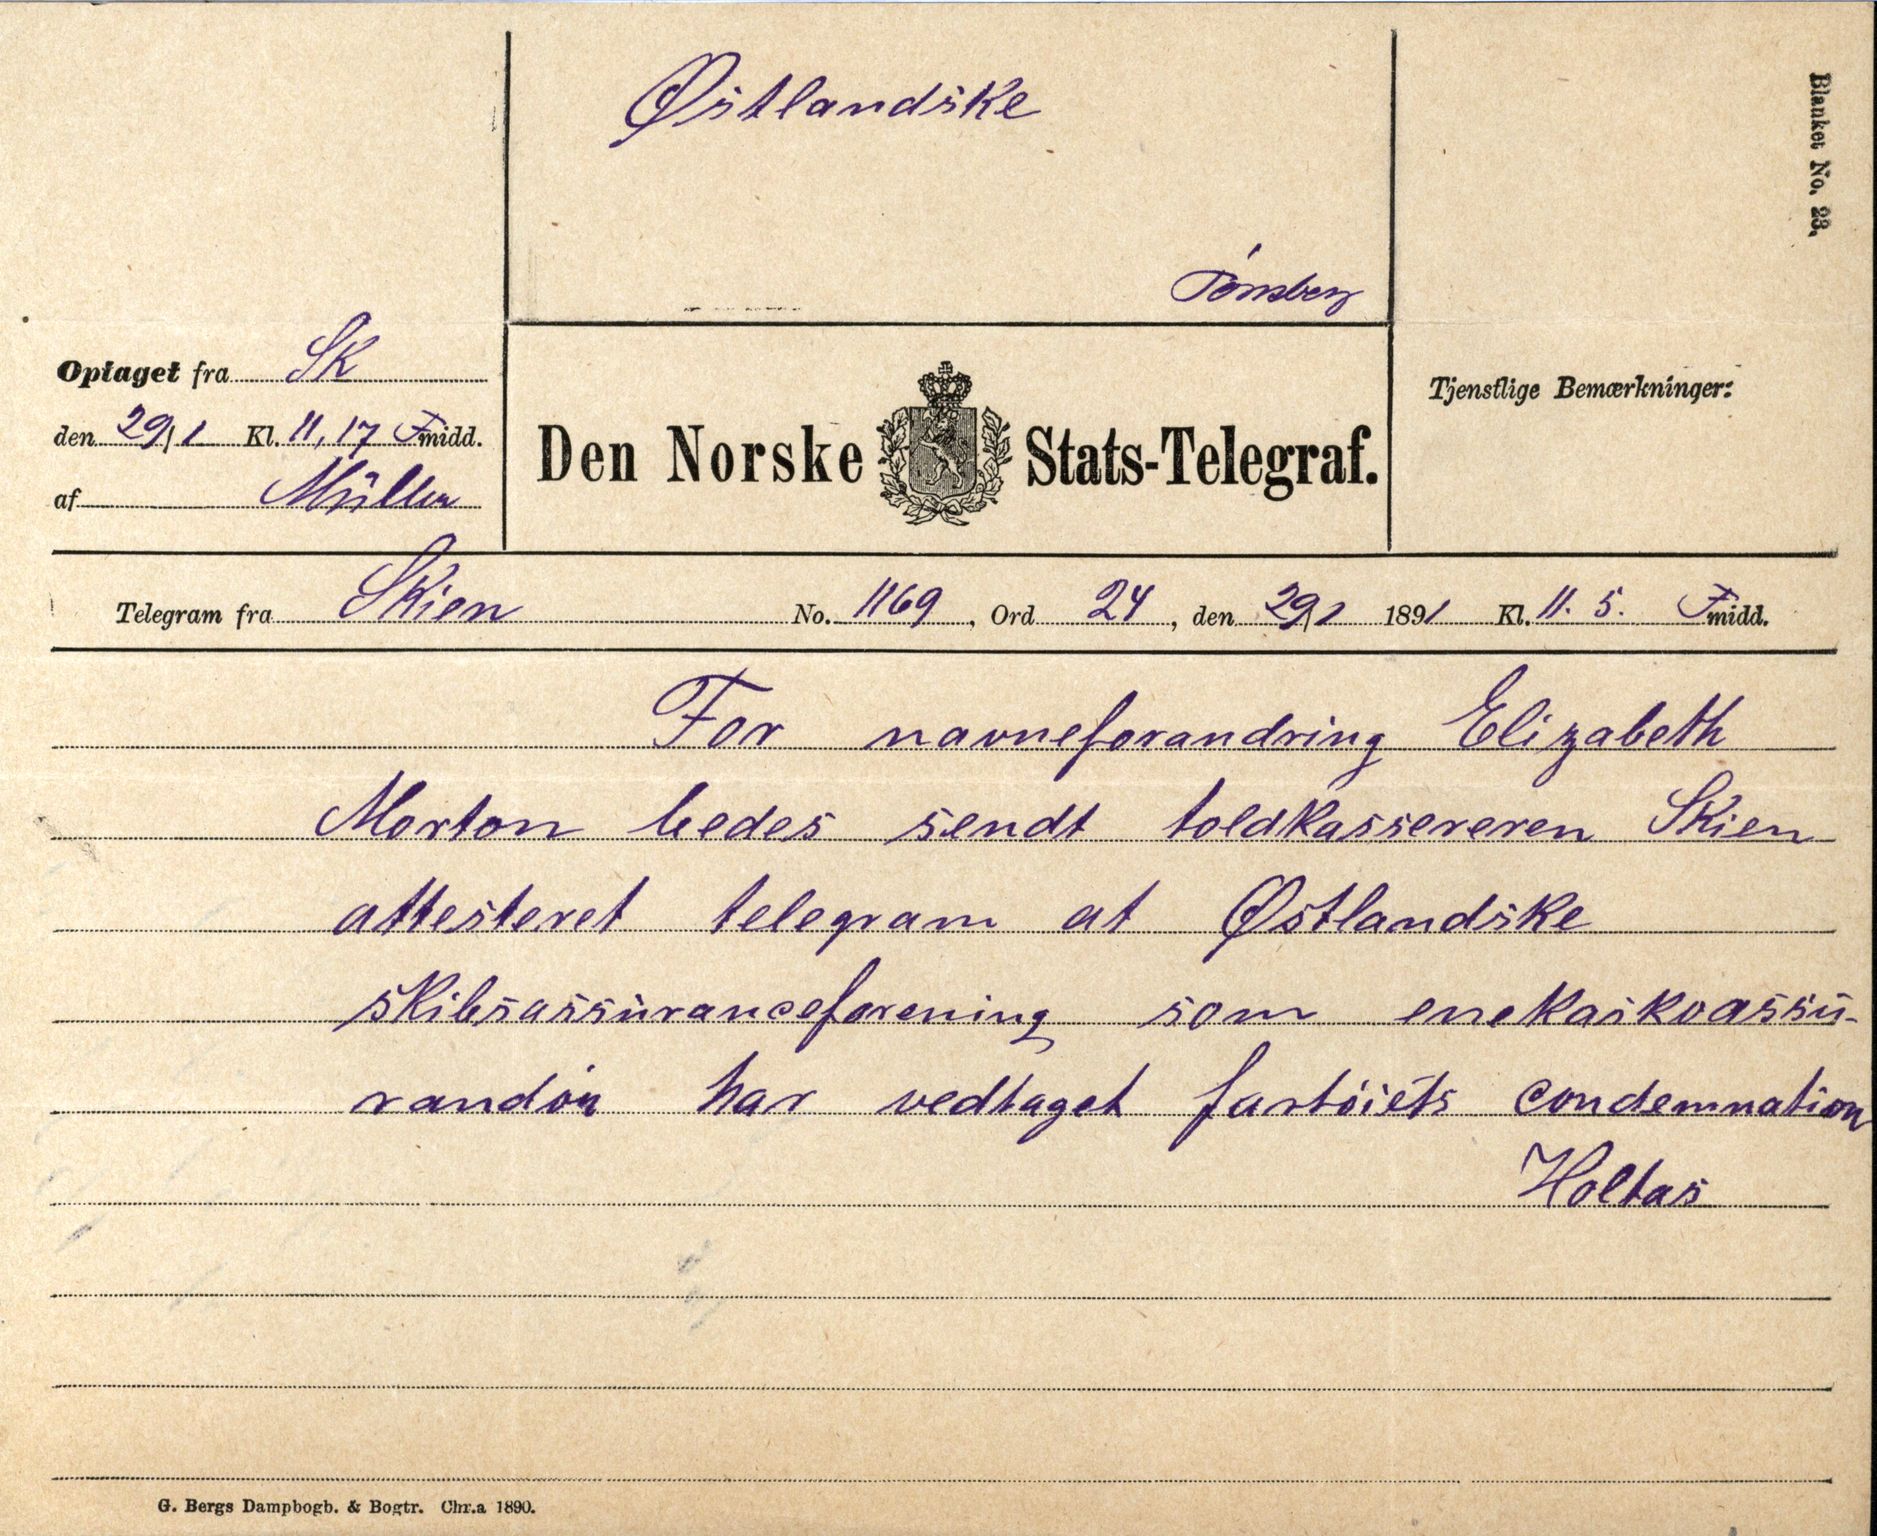 Østlandske
Tønsberg
Blanket No. 23.
Optaget fra SK
den 29/1 Kl. 11,17 Fmidd.
af Müller
Den Norske Stats-Telegraf.
Tjenstlige Bemærkninger:
Telegram fra Skien No. 1169, Ord 24, den 29/1 1891 Kl. 11.5. Fmidd.
For navneforandring Elizabeth
Morton bedes sendt toldkassereren Skien
attesteret telegram at Østlandske
skibsassuranceforening som enekaskoassu-
randør har vedtaget fartøiets condemnation
Holtas
G. Bergs Dampbogb. & Bogtr. Chr.a 1890.